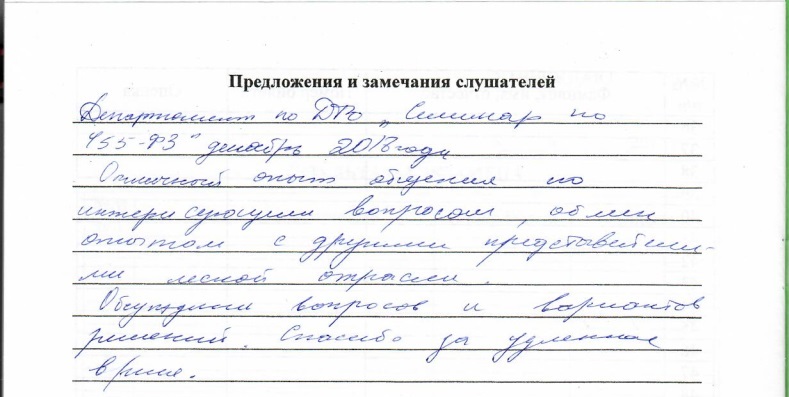 Предложения и замечания слушателей
Департамент по ДРО „Семинар по
455-ФЗ" декабрь 2018 года
Отличный опыт общения по
интересующим вопросам, обмен
опытом с другими представителя-
ми лесной отрасли.
Обсуждения вопросов и вариантов
решений. Спасибо за уделенное
время.